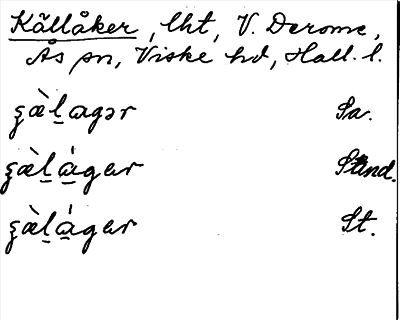 Källåker, lht, V. Derome,
Ås sn, Viske hd, Hall. l.
ʂæ̀l̠agər Sa.
ʂæ̀l̠á̠gar Stind.
ʂæ̀l̠á̠gar St.